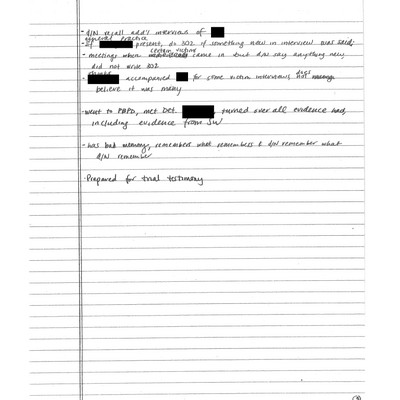 - d/N recall add'l interviews of
general practice
- If present, do 302 if something new in interview was said;
certain victims
- meetings when came in but d/N say anything new,
did not write 302
- accompanied for some victim interviews does not
believe it was many
- went to PBPD, met Det. , turned over all evidence had,
including evidence from SW
- was bad memory, remembers what remembers & d/N remember what
d/N remember
- Prepared for trial testimony